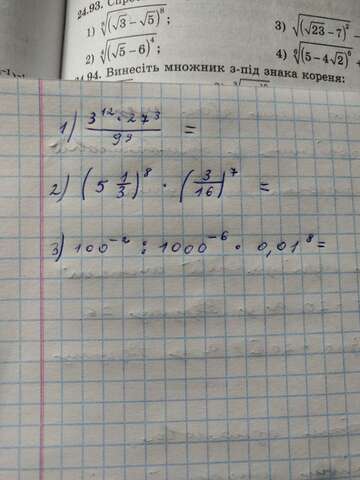 24.93.
1) ⁸√(√3 − √5)⁸;
3) √(√23 − 7)
2) ⁴√(√5 − 6)⁴;
4) ⁶√(5 − 4√2)⁶
94. Винесіть множник з-під знака кореня:
1) 3¹² · 27³ / 9⁹ =
2) (5 1/3)⁸ · (3/16)⁷ =
3) 100⁻² : 1000⁻⁶ · 0,01⁸ =